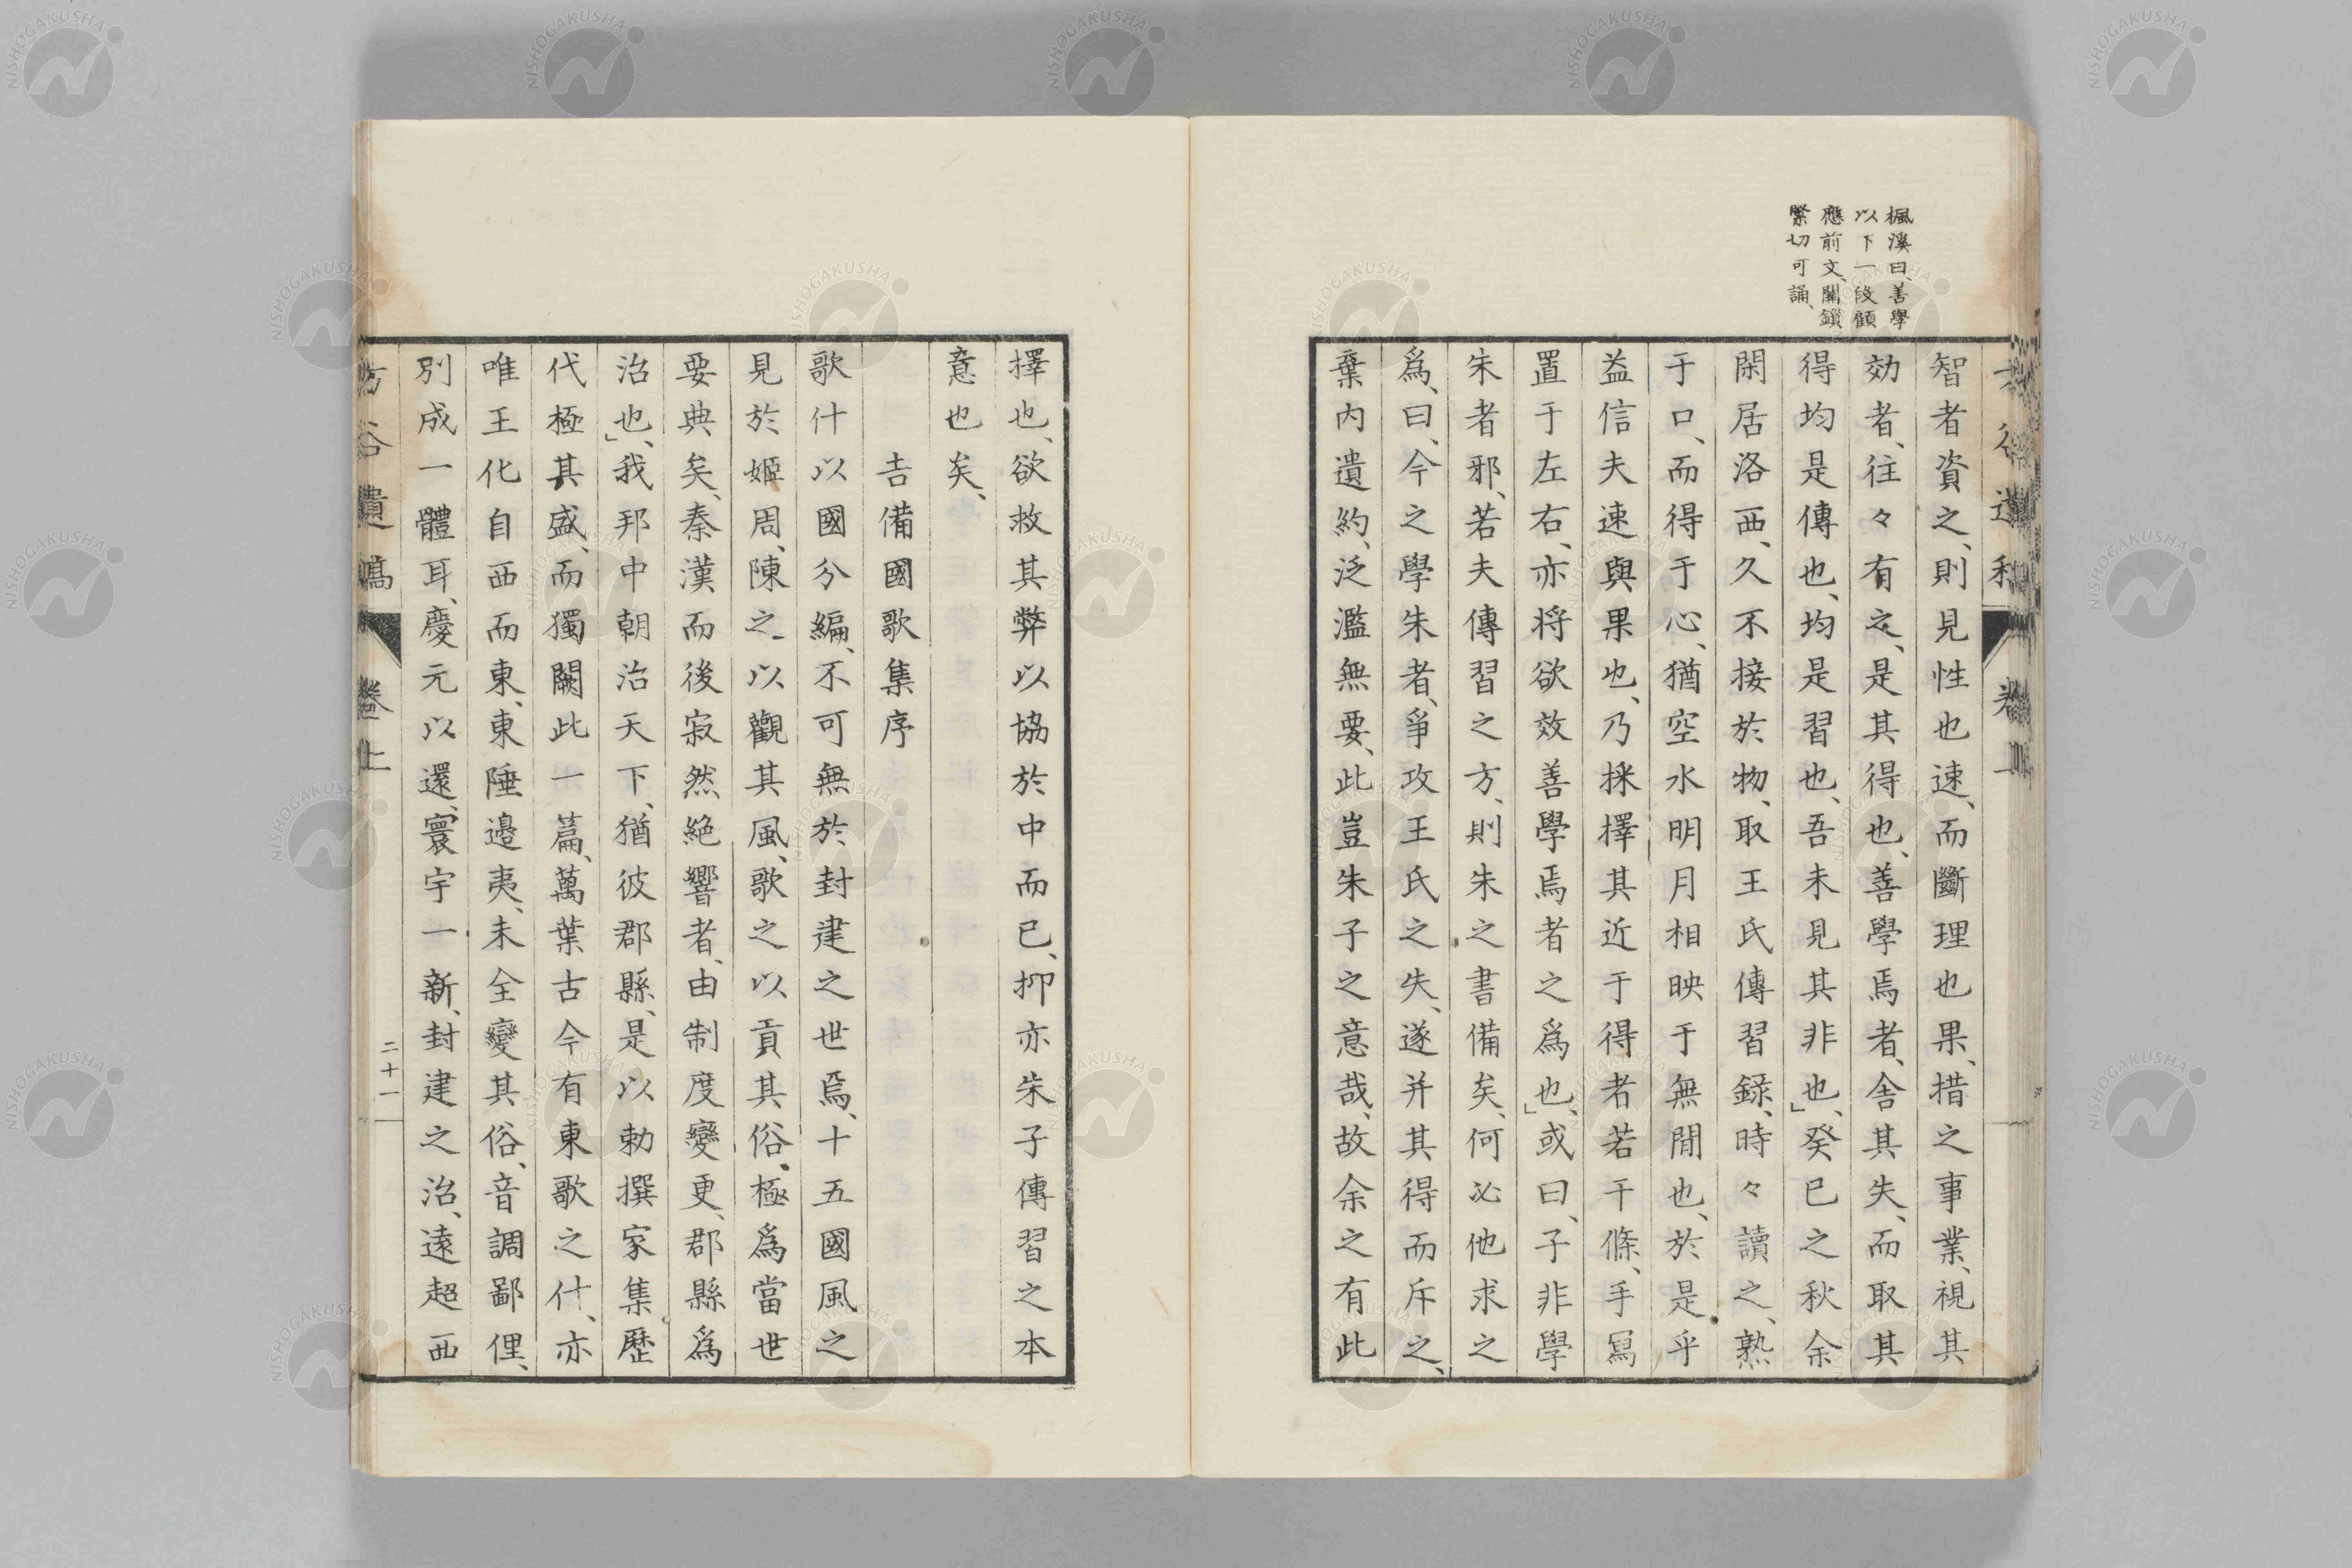 楓溪曰、善學
以下一段顧
應前文、關鎖
緊切可誦、
智者資之、則見性也速、而斷理也果、措之事業、視其
効者、往々有之、是其得也、善學焉者、舍其失、而取其
得均是傳也、均是習也、吾未見其非也、」癸巳之秋余
閑居洛西、久不接於物、取王氏傳習録、時々讀之、熟
于口、而得于心、猶空水明月相映于無間也、於是乎
益信夫速與果也、乃採擇其近于得者若干條、手冩
置于左右、亦将欲效善學焉者之爲也、」或曰、子非學
朱者邪、若夫傳習之方、則朱之書備矣、何必他求之
爲、曰、今之學朱者、爭攻王氏之失、遂并其得而斥之、
棄内遺約、泛濫無要、此豈朱子之意哉、故余之有此
擇也、欲救其弊以協於中而已、抑亦朱子傳習之本
意也矣、
吉備國歌集序
歌什以國分編、不可無於封建之世焉、十五國風之
見於姬周、陳之以觀其風、歌之以貢其俗、極爲當世
要典矣、秦漢而後寂然絶響者、由制度變更、郡縣爲
治也、」我邦中朝治天下、猶彼郡縣、是以勅撰家集歴
代極其盛、而獨闕此一篇、萬葉古今有東歌之什、亦
唯王化自西而東、東陲邉夷、未全變其俗、音調鄙俚、
別成一體耳、慶元以還、寰宇一新、封建之治、遠超西
谷遺稿
卷上
二十一
NISHOGAKUSHA